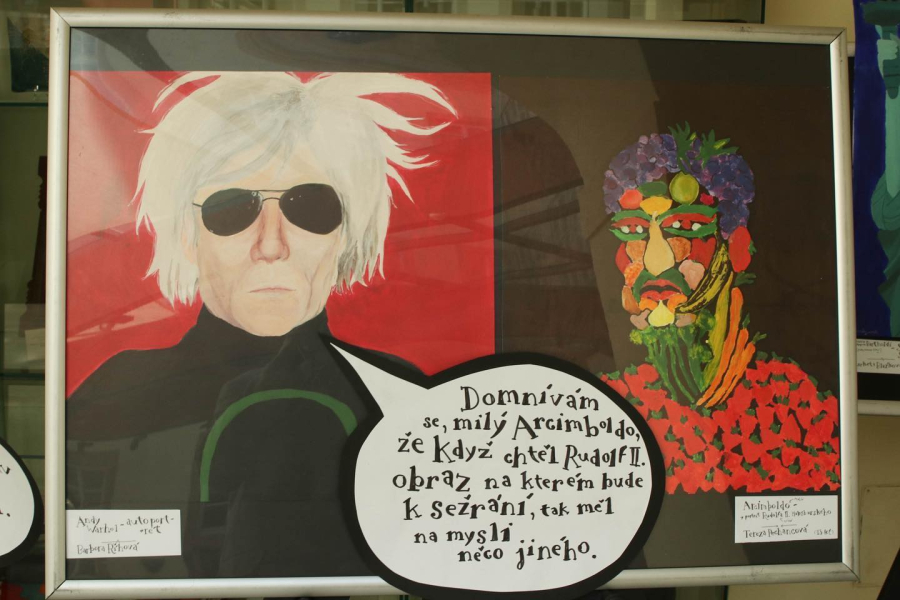 Domnívám
se, milý Arcimboldo,
že když chtěl Rudolf II.
obraz na kterém bude
k sežrání, tak měl
na mysli
něco jiného.
Andy
Warhol - autoport-
rét
Barbora Rýková
Arcimboldo
Tereza